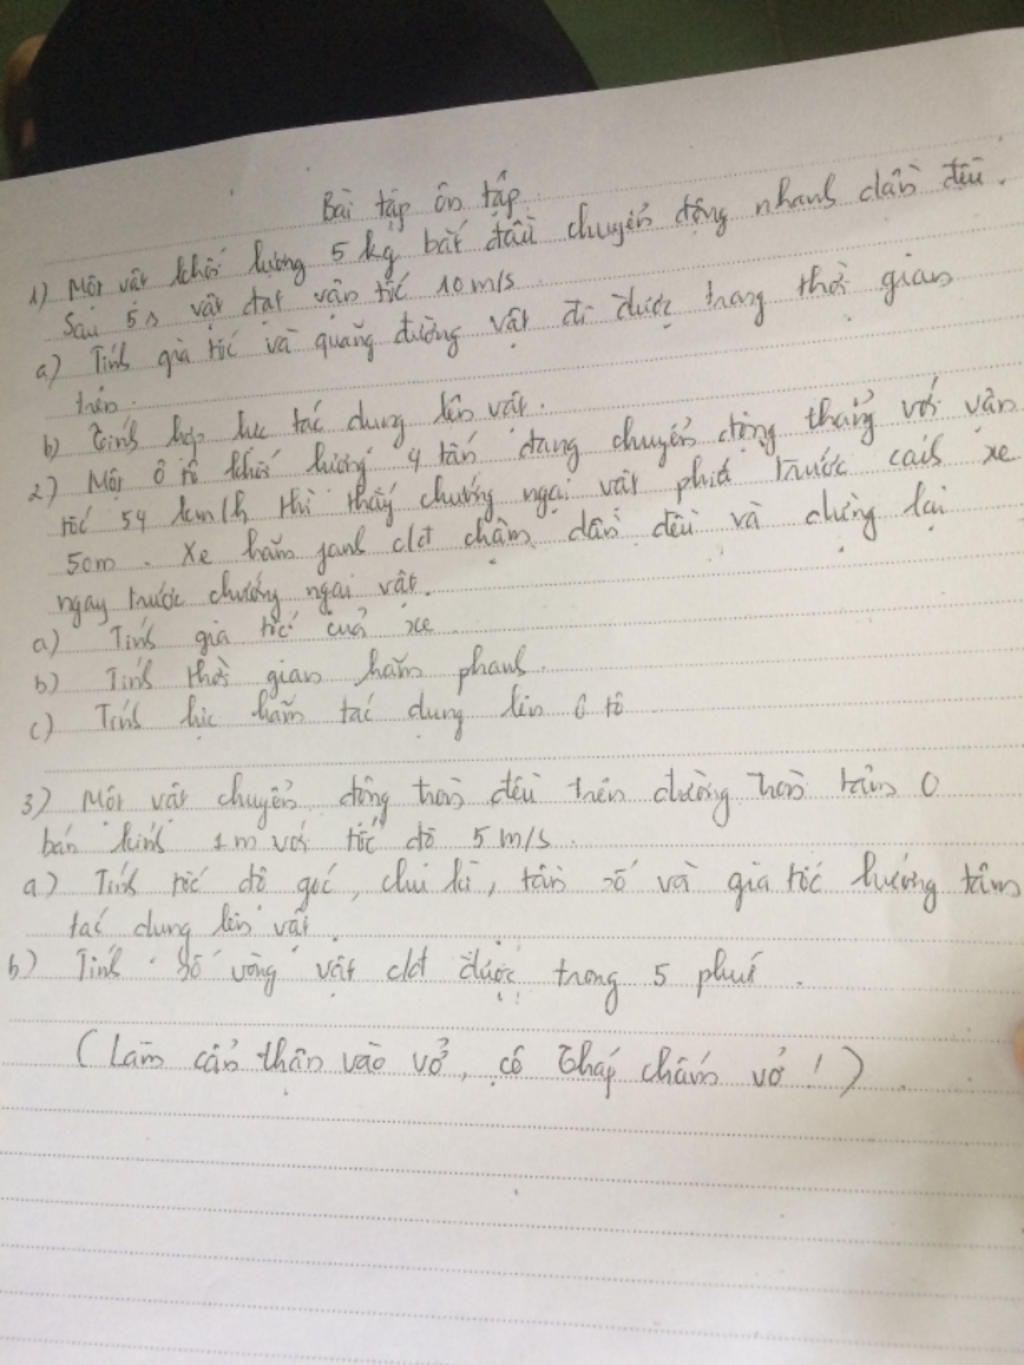 Bài tập ôn tập
1) Một vật khối lượng 5 kg bắt đầu chuyển động nhanh dần đều.
Sau 5s vật đạt vận tốc 10 m/s
a) Tính gia tốc và quãng đường vật đi được trong thời gian
trên.
b) Tính hợp lực tác dụng lên vật.
2) Một ô tô khối lượng 4 tấn đang chuyển động thẳng với vận
tốc 54 km/h thì thấy chướng ngại vật phía trước cách xe
50m. Xe hãm phanh c/đ chậm dần đều và dừng lại
ngay trước chướng ngại vật.
a) Tính gia tốc của xe
b) Tính thời gian hãm phanh.
c) Tính lực hãm tác dụng lên ô tô
3) Một vật chuyển động tròn đều trên đường tròn tâm O
bán kính 1m với tốc độ 5 m/s.
a) Tính tốc độ góc, chu kì, tần số và gia tốc hướng tâm
tác dụng lên vật.
b) Tính số vòng vật c/đ được trong 5 phút.
(Làm cẩn thận vào vở, cô Tháp chấm vở!)